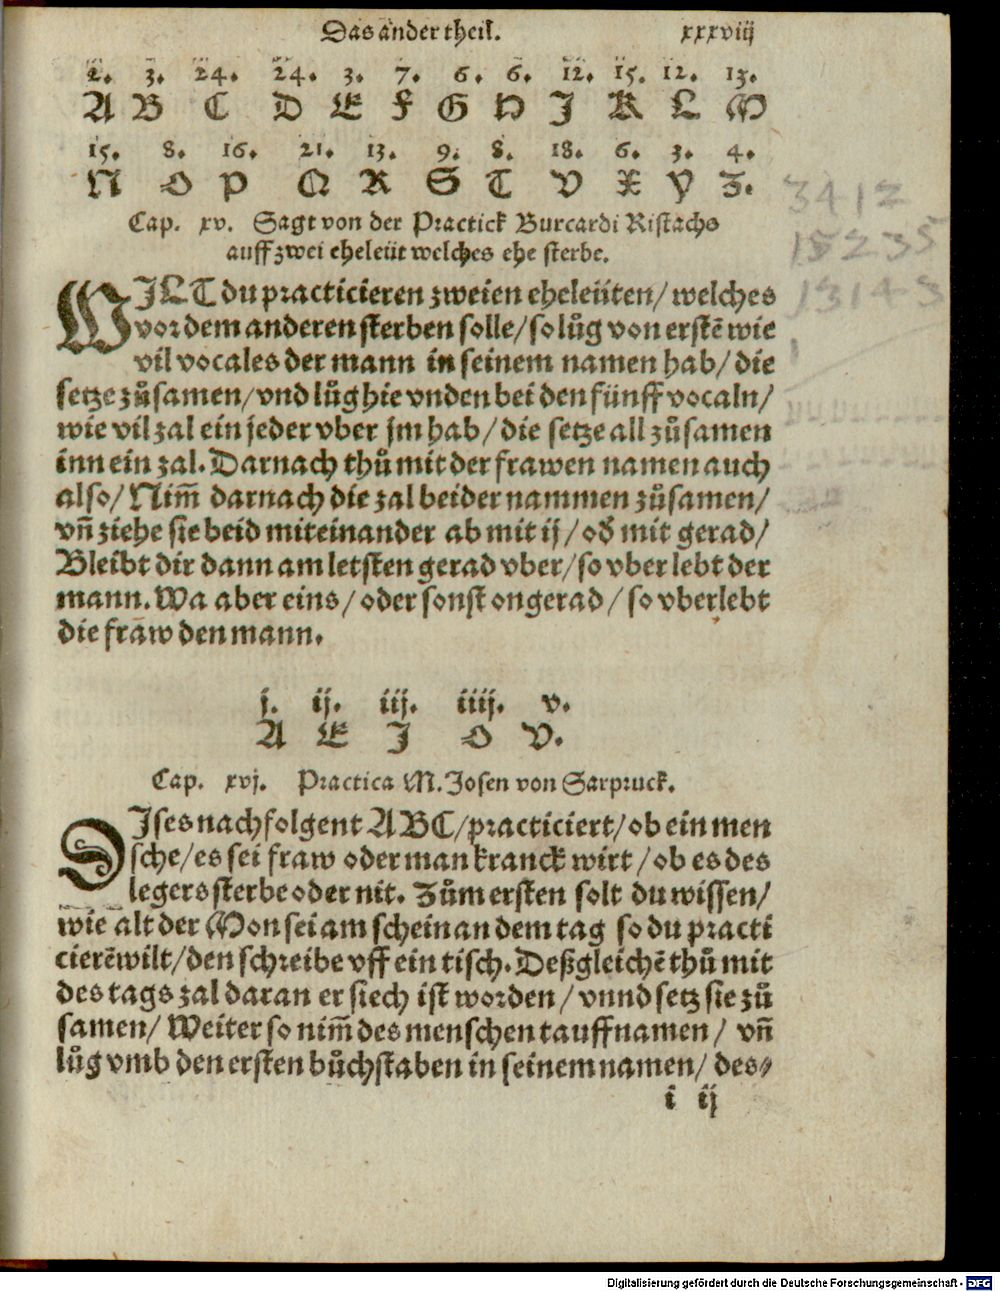 Das ander theil. xxxviij
2. 3. 24. 24. 3. 7. 6. 6. 12. 15. 12. 13.
A B C D E F G H J K L M
15. 8. 16. 21. 13. 9. 8. 18. 6. 3. 4.
N O P Q R S T V X Y Z.
Cap. xv. Sagt von der Practick Burcardi Ristachs
auff zwei eheleüt welches ehe sterbe.
WJLT du practicieren zweien eheleüten/ welches
vor dem anderen sterben solle/ so lůg von erstē wie
vil vocales der mann in seinem namen hab/ die
setze zůsamen/ vnd lůg hie vnden bei den fünff vocaln/
wie vil zal ein jeder vber jm hab/ die setze all zůsamen
inn ein zal. Darnach thů mit der frawen namen auch
also/ Nim̄ darnach die zal beider nammen zůsamen/
vn̄ ziehe sie beid miteinander ab mit ij/ od' mit gerad/
Bleibt dir dann am letsten gerad vber/ so vber lebt der
mann. Wa aber eins/ oder sonst ongerad/ so vberlebt
die fraw den mann.
j. ij. iij. iiij. v.
A E J O V.
Cap. xvj. Practica M. Josen von Sarpruck.
DJses nachfolgent ABC/ practiciert/ ob ein men
sche/ es sei fraw oder man kranck wirt/ ob es des
legers sterbe oder nit. Zům ersten solt du wissen/
wie alt der Mon sei am schein an dem tag so du practi
cierē wilt/ den schreibe vff ein tisch. Deßgleichē thů mit
des tags zal daran er siech ist worden/ vnnd setz sie zů
samen/ Weiter so nim̄ des menschen tauffnamen/ vn̄
lůg vmb den ersten bůchstaben in seinem namen/ des⸗
i ij
3412
15235
13143
Digitalisierung gefördert durch die Deutsche Forschungsgemeinschaft - DFG